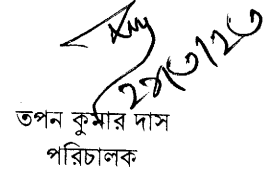 তপন কুমার দাস
পরিচালক